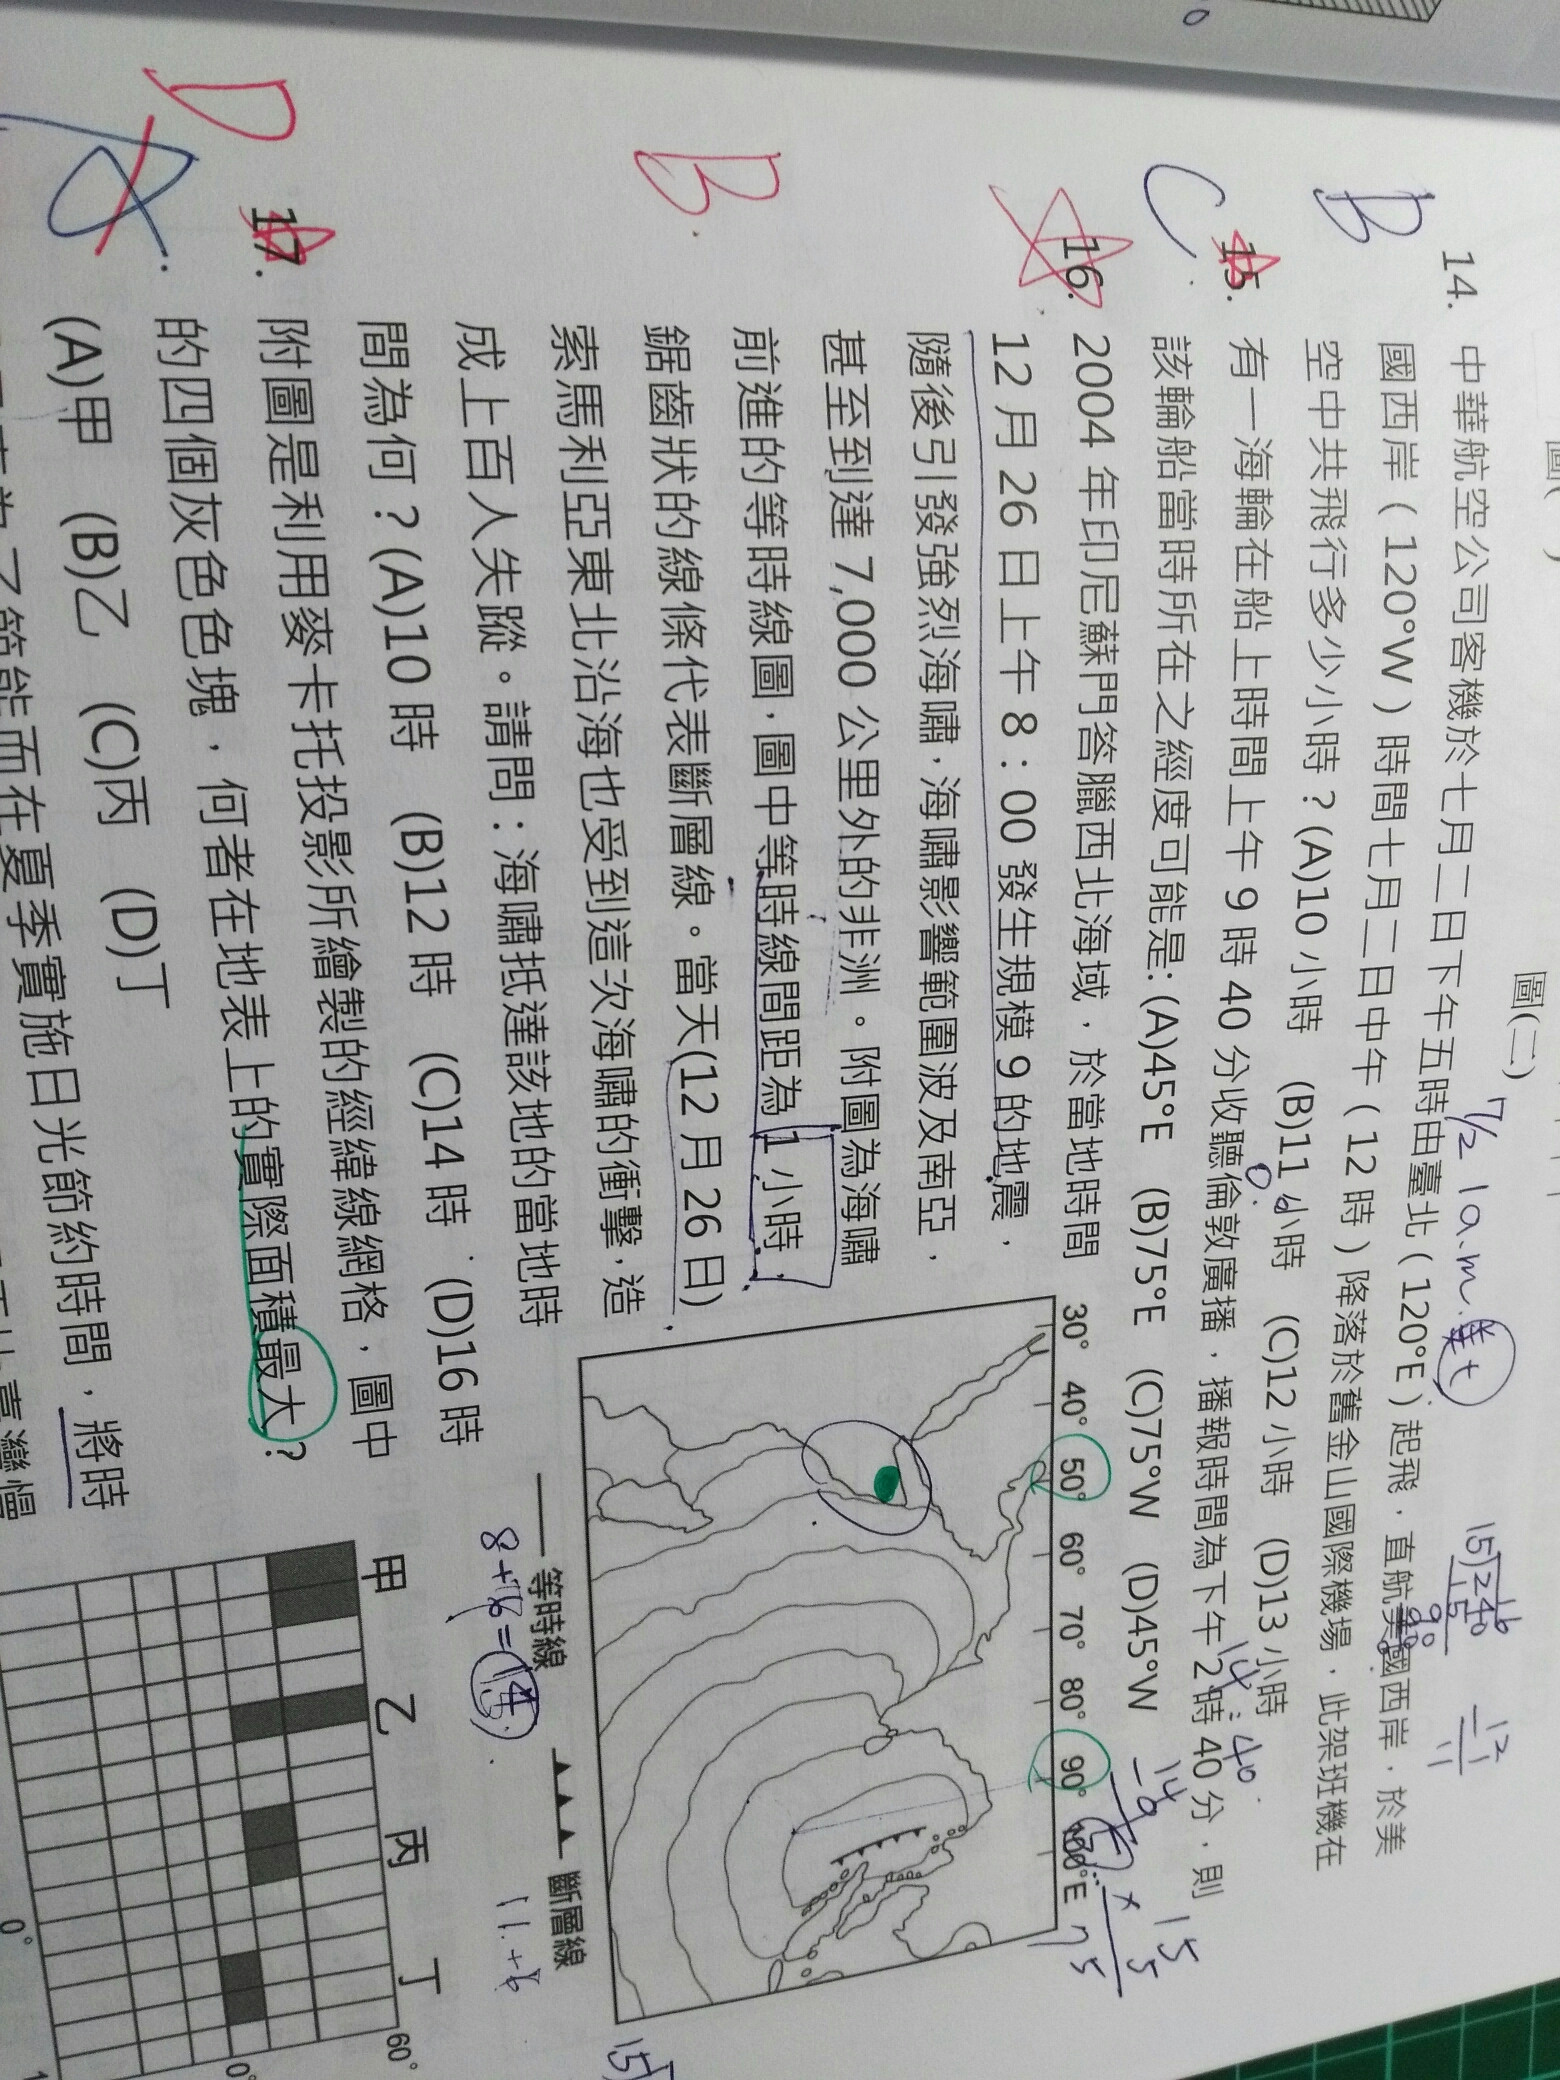 圖(二)
7/2 1a.m.
B 14. 中華航空公司客機於七月二日下午五時由臺北(120°E)起飛，直航美國西岸，於美
國西岸(120°W)時間七月二日中午(12時)降落於舊金山國際機場，此架班機在
空中共飛行多少小時？(A)10小時 (B)11小時 (C)12小時 (D)13小時
C 15. 有一海輪在船上時間上午9時40分收聽倫敦廣播，播報時間為下午2時40分，則
該輪船當時所在之經度可能是：(A)45°E (B)75°E (C)75°W (D)45°W
B 16. 2004年印尼蘇門答臘西北海域，於當地時間
12月26日上午8：00發生規模9的地震，
隨後引發強烈海嘯，海嘯影響範圍波及南亞，
甚至到達7,000公里外的非洲。附圖為海嘯
前進的等時線圖，圖中等時線間距為1小時，
鋸齒狀的線條代表斷層線。當天(12月26日)
索馬利亞東北沿海也受到這次海嘯的衝擊，造
成上百人失蹤。請問：海嘯抵達該地的當地時
間為何？(A)10時 (B)12時 (C)14時 (D)16時
30° 40° 50° 60° 70° 80° 90° 100°E
等時線 斷層線
D 17. 附圖是利用麥卡托投影所繪製的經緯線網格，圖中
的四個灰色色塊，何者在地表上的實際面積最大？
(A)甲 (B)乙 (C)丙 (D)丁
甲 乙 丙 丁
60°
0°
0°
節能而在夏季實施日光節約時間，將時